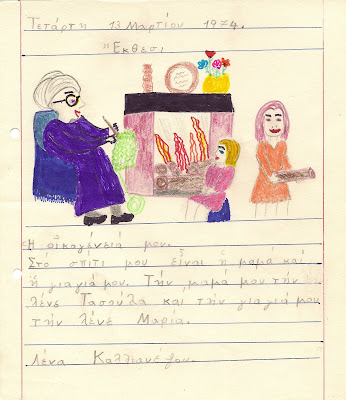 Τετάρτη 13 Μαρτίου 1974.
"Εκθεσι
Ἡ οἰκογένειά μου.
Στό σπίτι μου εἶναι ἡ μαμά καί
ἡ γιαγιά μου. Τήν μαμά μου τήν
λένε Τασούλα καί τήν γιαγιά μου
τήν λένε Μαρία.
Λένα